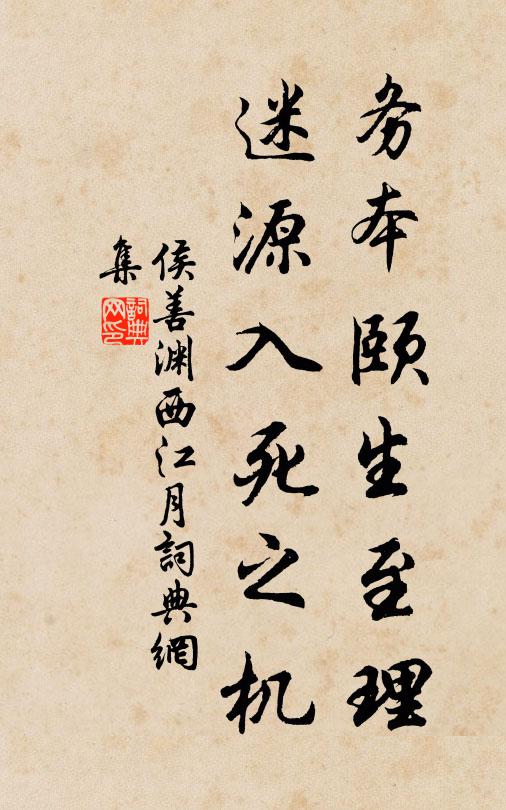 务本颐生至理
迷源入死之机
侯善渊西江月詞典網
集
詞典网印